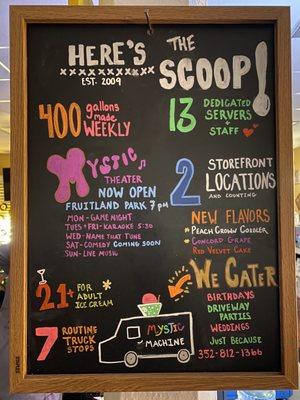 HERE'S
THE
SCOOP!
EST. 2009
400 gallons
made
WEEKLY
13 DEDICATED
SERVERS
+
STAFF
MYSTIC
THEATER
NOW OPEN
FRUITLAND PARK 7pm
MON - GAME NIGHT
TUES + FRI - KARAOKE 5:30
WED - NAME THAT TUNE
SAT - COMEDY COMING SOON
SUN - LIVE MUSIC
2 STOREFRONT
LOCATIONS
AND COUNTING
NEW FLAVORS
PEACH CROWN COBBLER
CONCORD GRAPE
RED VELVET CAKE
21+ FOR ADULT
ICE CREAM
7 ROUTINE
TRUCK
STOPS
MYSTIC
MACHINE
WE CATER
BIRTHDAYS
DRIVEWAY
PARTIES
WEDDINGS
JUST BECAUSE
352-812-1366